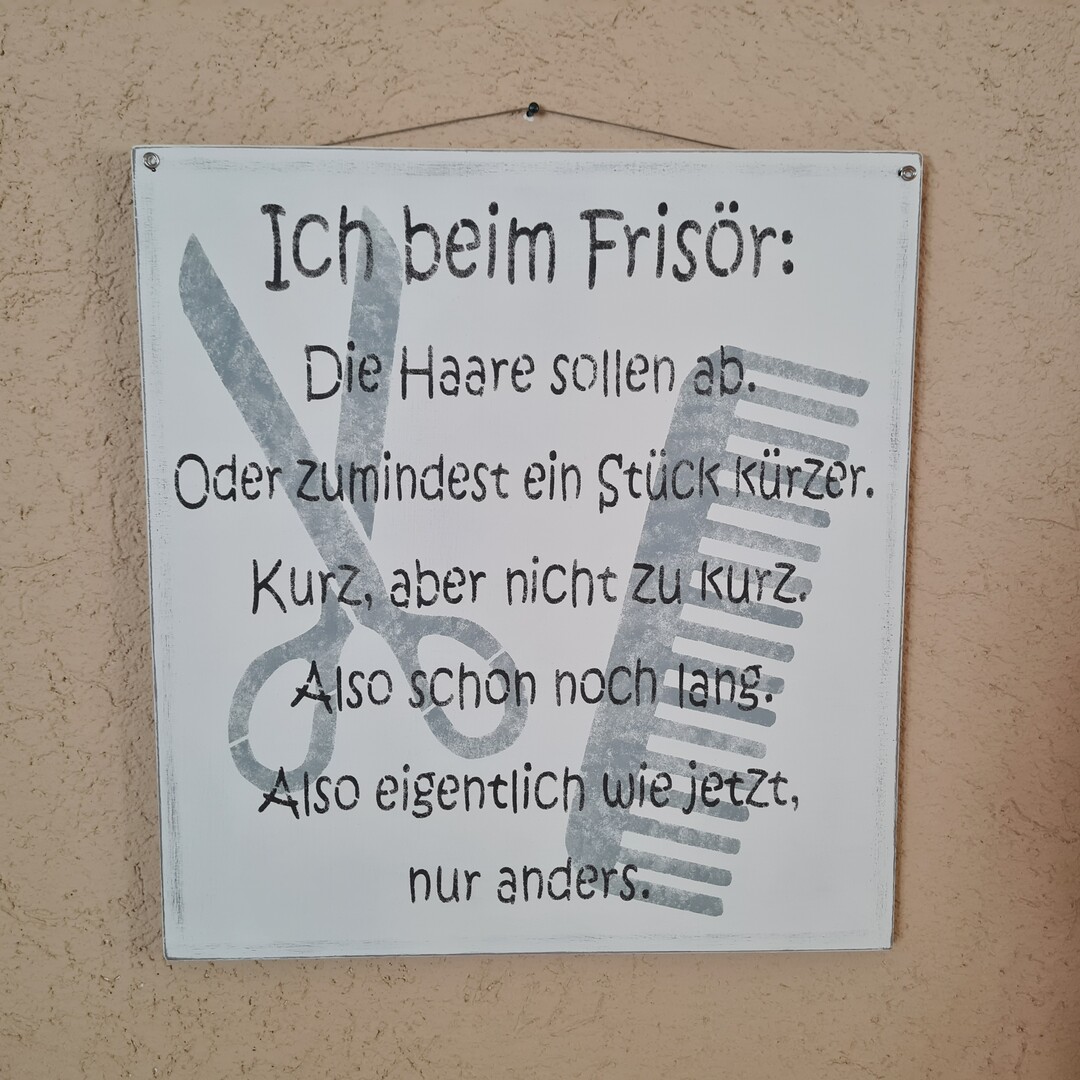 Ich beim Frisör:
Die Haare sollen ab.
Oder zumindest ein Stück kürzer.
Kurz, aber nicht zu kurz.
Also schon noch lang.
Also eigentlich wie jetzt,
nur anders.